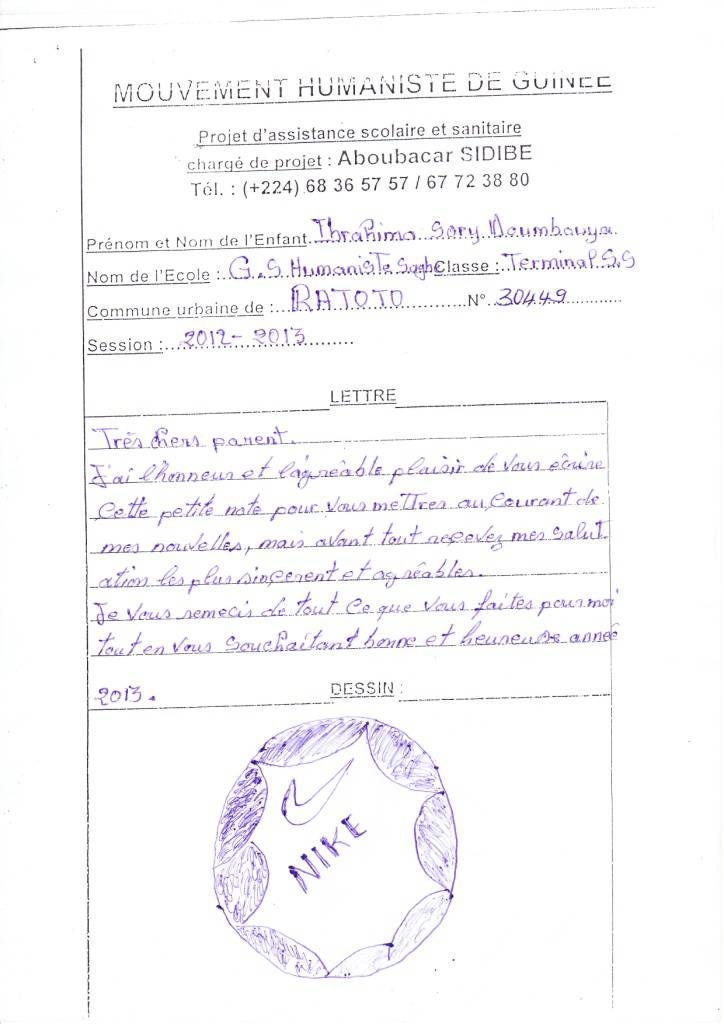 MOUVEMENT HUMANISTE DE GUINEE
Projet d'assistance scolaire et sanitaire
chargé de projet : Aboubacar SIDIBE
Tél. : (+224) 68 36 57 57 / 67 72 38 80
Prénom et Nom de l'Enfant Ibrahima Sory Doumbouya
Nom de l'Ecole : G.S Humaniste Classe : Terminal S.S
Commune urbaine de : RATOTO N° 30449
Session : 2012-2013
LETTRE
Très chers parent.
J'ai lhonneur et lagréable plaisir de vous écrire
Cette petite note pour vous mettres au courant de
mes nouvelles, mais avant tout reçevez mes salut
ation les plus sinçerent et agréables.
Je vous remecis de tout ce que vous faites pour moi
tout en vous souchaitant bonne et heureuse année
2013.
DESSIN :
NIKE